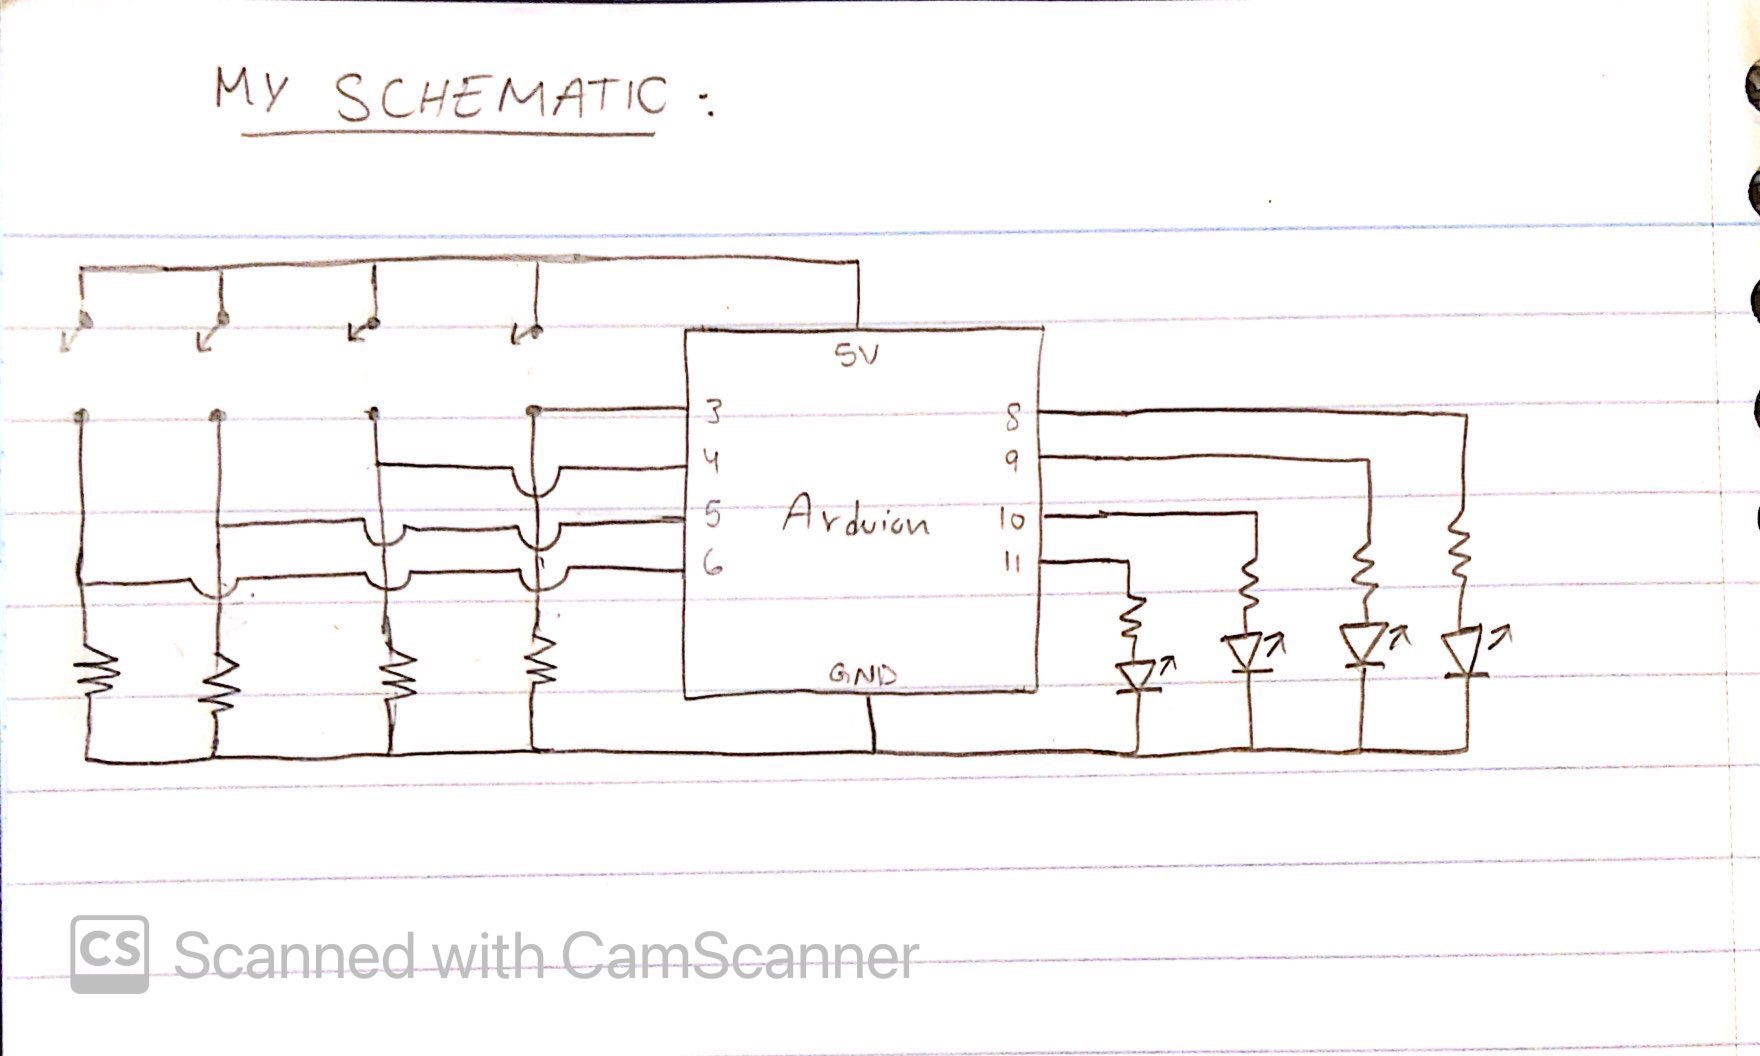 MY SCHEMATIC :
5V
3 8
4 9
5 Arduion 10
6 11
GND
CS Scanned with CamScanner